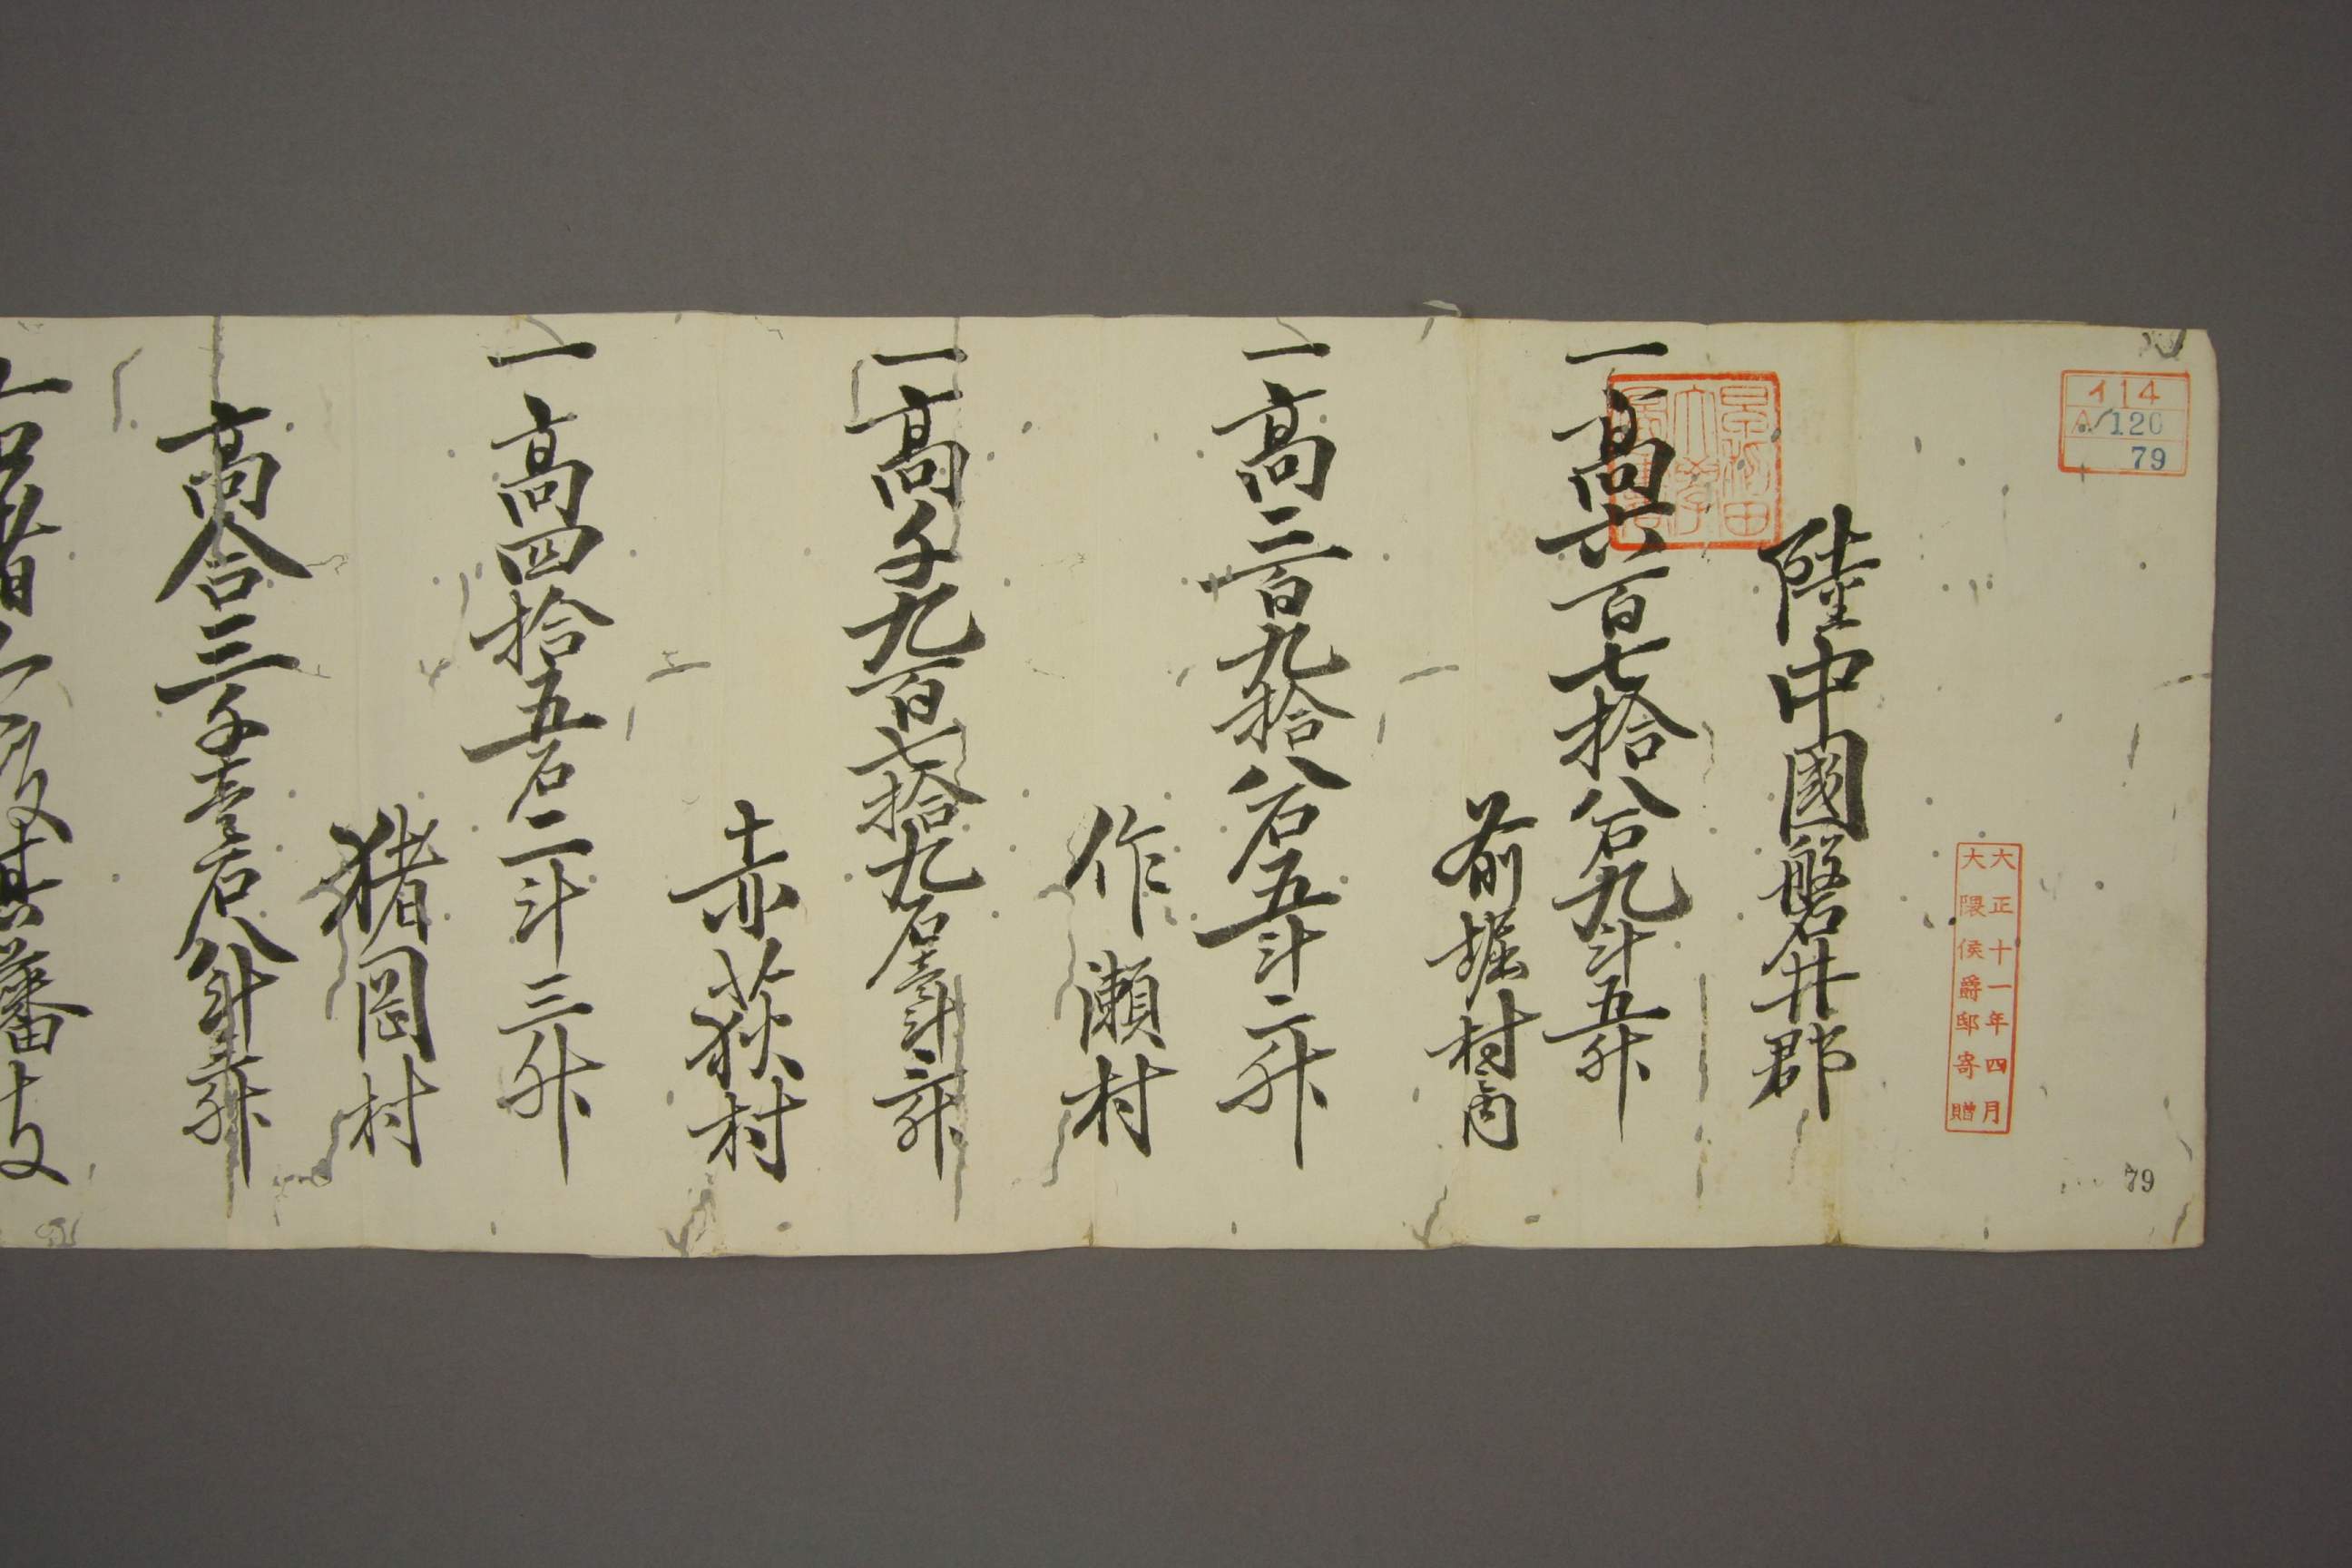 イ14
A/120
79
大正十一年四月
大隈侯爵邸寄贈
79
陸中國磐井郡
一高六百七拾八石九斗五升
前堀村内
一高二百九拾八石五斗二升
作瀬村
一高千九百七拾九石壱斗三升
赤荻村
一高四拾五石二斗三升
猪岡村
高合三千壱石八斗三升
右者今般其藩支